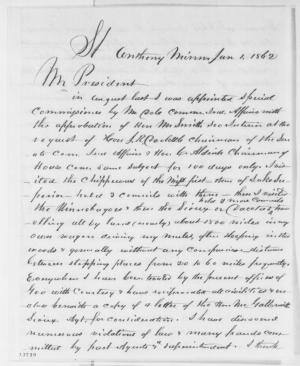 St Anthony Minn Jan 1, 1862
Mr President
in August last I was appointed Special
Commissioner by Mr Dole Com. Ind. Affairs with
the approbation of Hon Mr Smith Sec Interior at the
request of Hon J.R. Doolittle Chairman of the Sen
ate Com. Ind Affairs & Hon C. Aldrich Chairman of
House Com. same subject for 100 days only. I vis
ited the Chippewas of the Miss first then of Lake Su
perior held 2 councils with them then I visited
the Winnebagoes & then the Sioux or Dacotas trav
elling all by land (nearly) about 1800 miles in my
own wagon driving my mules, often sleeping in the
woods & generally without any companion distance
between stopping places from 20 to 60 miles frequently.
Everywhere I have been treated by the present officers of
Gov with Courtesy & have
enclose herewith a copy of a letter of the Hon Mr Galbraith
Sioux Agt. for consideration. I have discovered
numerous violations of law & many frauds com
mitted by past Agents & Superintendent. I think
13739